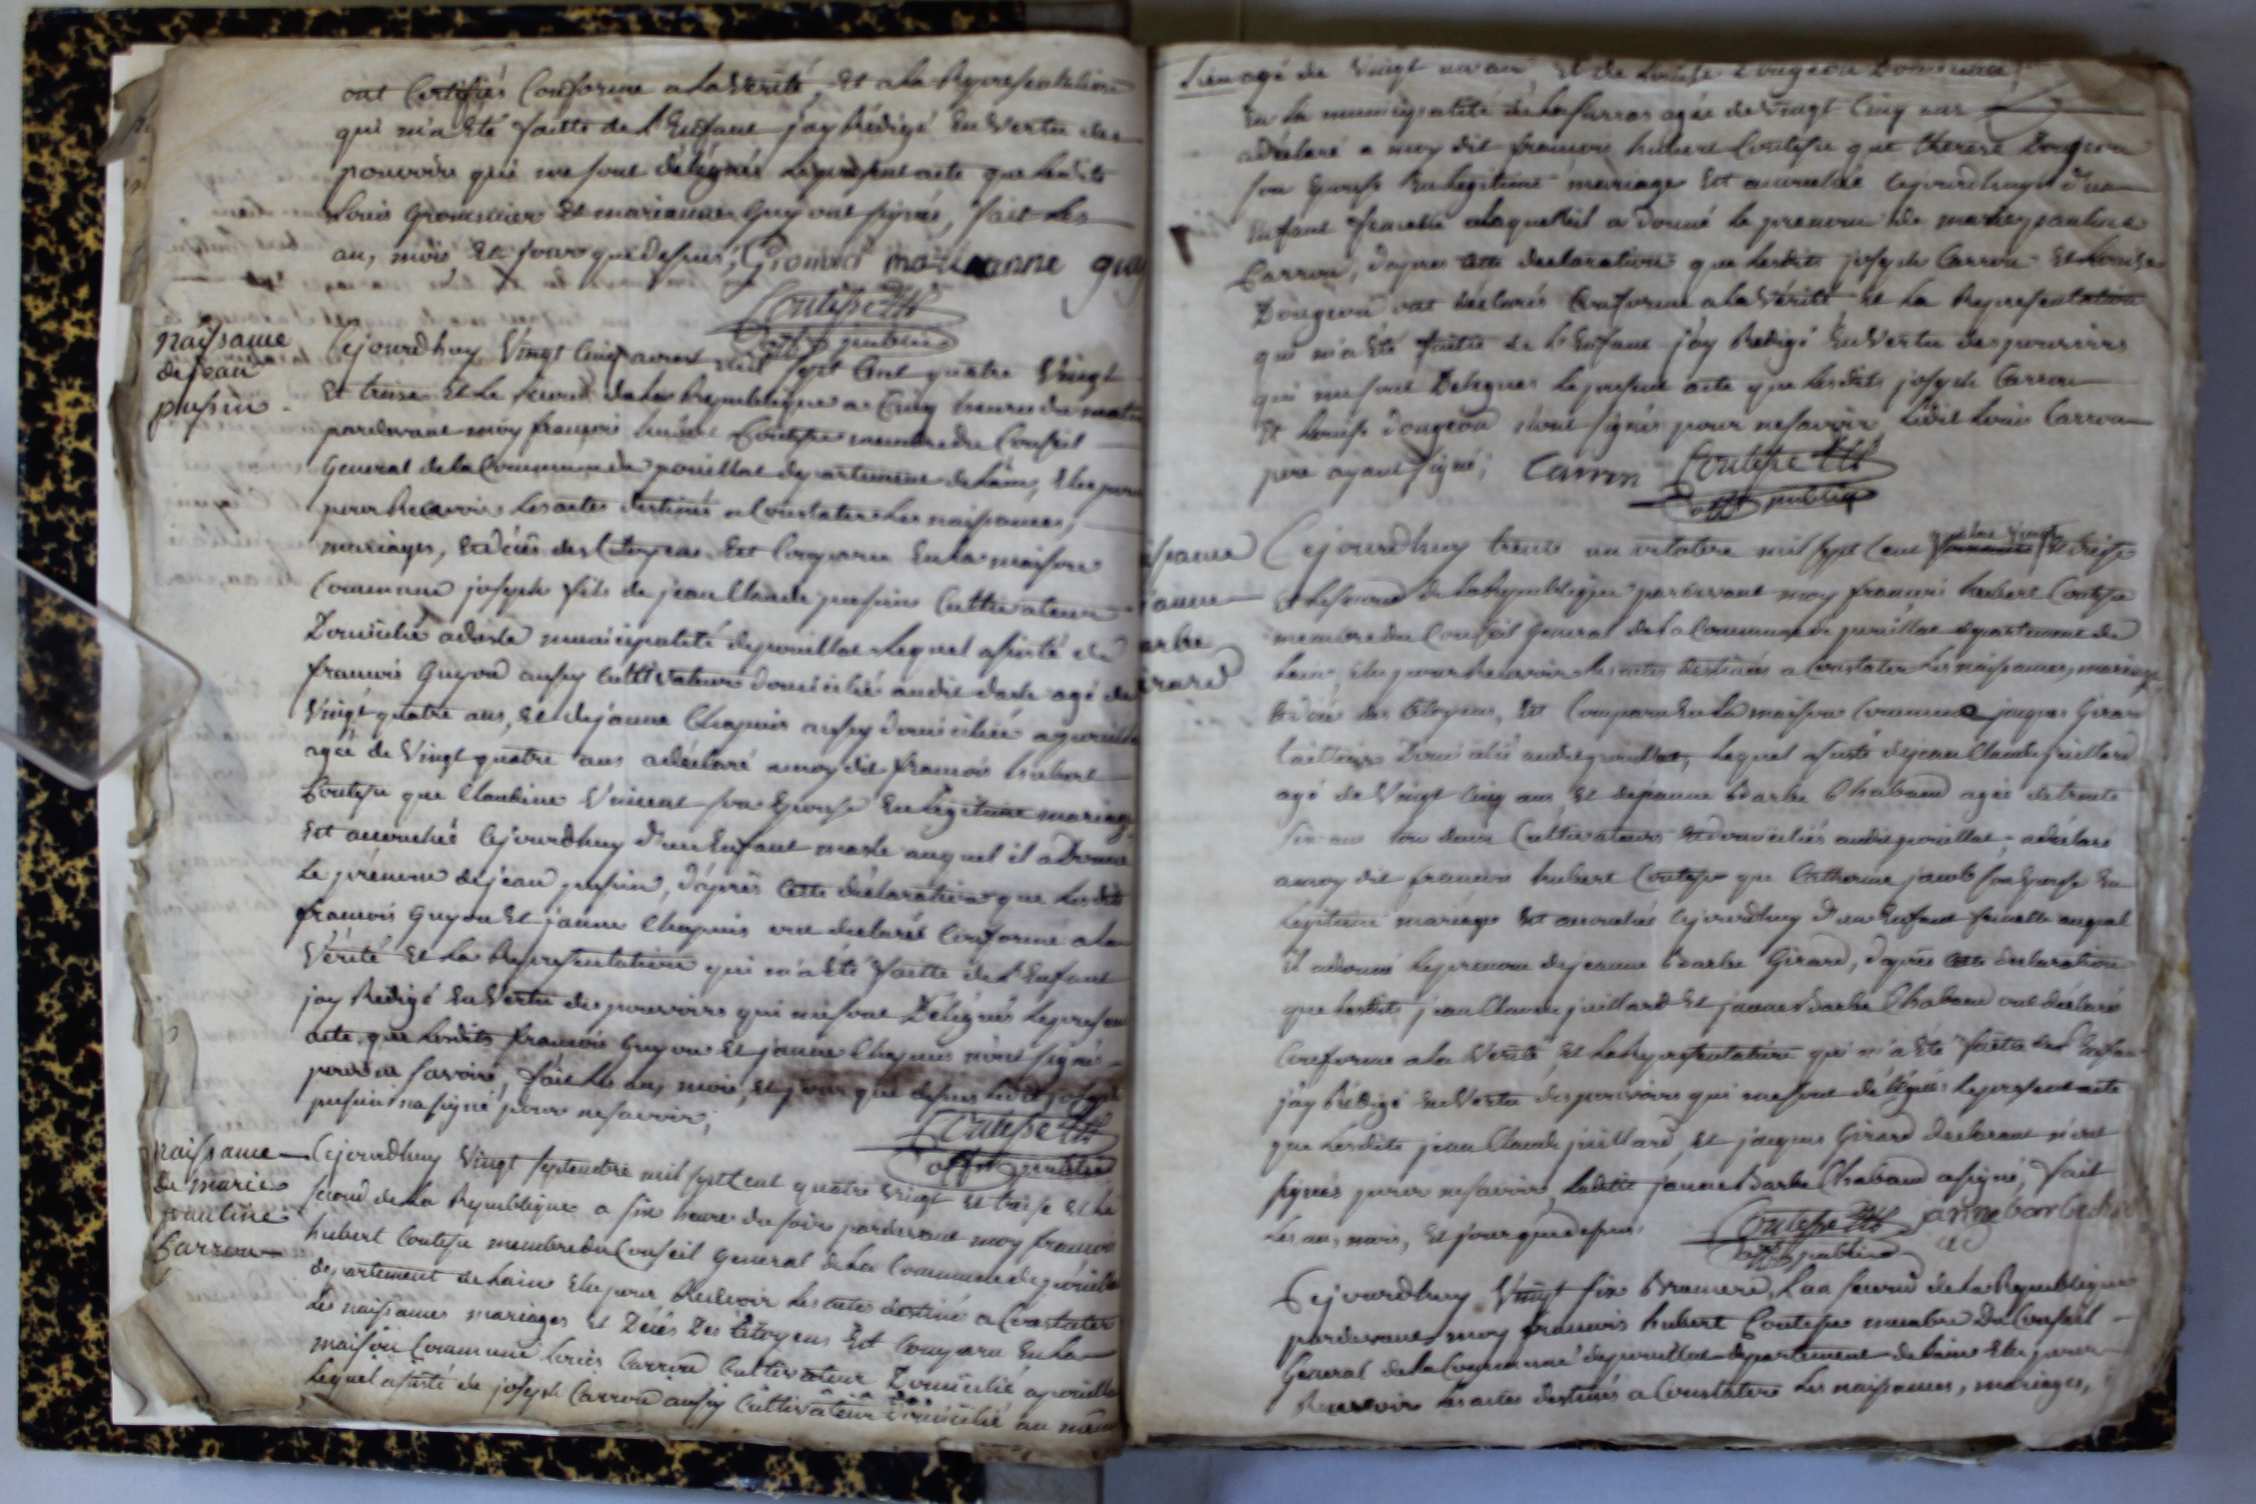 ont Certifiés Conforme a la Verité, et a la Representation
qui m'a Eté faitte de l'Enfant j'ay Rédigé En Vertu des
pouvoirs qui me sont délégués le présent acte que lesdits
Louis et marianne Guy ont signés, fait les
an, mois et jour que dessus, marieanne guy
Coutesse
off. publice
naissance
de jean
pusin
Cejourdhuy Vingt Cinq mil sept Cent quatre Vingt
Et treise Et le second de la Republique a Cinq heures du matin
pardevant moy francois hubert Coutesse membre du Conseil
General de la Commune de pouillat departement de Lain, Elu pour
pour Recevoir les actes destinés a Constater les naissances,
mariages, et décès des Citoyens Est Comparu En la maison
Commune joseph fils de jean Claude pusin Cultivateur
Domicilié a darle municipalité de pouillat lequel assisté de
francois Guyon aussy Cultivateur domicilié audit darle agé de
Vingt quatre ans, et de janne Chapuis aussy domiciliée a pouillat
agée de Vingt quatre ans a déclaré a moy dit francois hubert
Coutesse que Claudine Vincent son Epouse En légitime mariage
Est accouchée Cejourdhuy d'un Enfant masle auquel il a Donné
le prénom de jean pusin, d'après Cette déclaration que lesdits
francois Guyon Et janne Chapuis ont déclaré Conforme a la
Vérité et la Representation qui m'a Eté faitte de l'Enfant
j'ay Redigé En Vertu des pouvoirs qui me sont Délégués le present
acte que lesdits francois Guyon et janne Chapuis n'ont signé
pour ne savoir, fait les an, mois, et jour que dessus ledit joseph
pusin n'a signé pour ne savoir;
Coutesse
off. publice
naissance
de marie
pauline
Carron
Cejourdhuy Vingt septembre mil sept Cent quatre Vingt et treise et le
second de la Republique a six heure du soir pardevant moy francois
hubert Coutesse membre du Conseil General de la Commune de pouillat
departement de Lain Elu pour Recevoir les acte destiné a Constater
les naissances mariages et Décès Des Citoyens Est Comparu En la
maison Commune Louis Carron Cultivateur Domicilié a pouillat
lequel assisté de joseph Carron aussy Cultivateur Domicilié au même
Lieu agé de Vingt un an et de Louise Dongeon Domiciliée
En la municipalité de agée de Vingt Cinq ans
a déclaré a moy dit francois hubert Coutesse que therese Dongeon
son Epouse En légitime mariage Est accouchée Cejourdhuy d'un
Enfant femelle alaquelle il a donné le prenom de marie pauline
Carron, d'apres cette declaration que lesdits joseph Carron et Louise
Dongeon ont déclarés Conforme a la Vérité et la Representation
qui m'a Eté faitte de l'Enfant j'ay Redigé En Vertu des pouvoirs
qui me sont Delegues le present acte que lesdits joseph Carron
Et Louise dongeon n'ont signés pour ne savoir Ledit Louis Carron
père ayant signé; Carron Coutesse
off. publice
issance
janne
arbe
irard
Cejourdhuy trente un octobre mil sept Cent quatre Vingt Et treise
Et le second de la Republique pardevant moy francois hubert Coutesse
membre du Conseil General de la Commune de pouillat departement de
Lain, Elu pour Recevoir les actes destinés a Constater les naissances, mariages,
et décès des Citoyens, Est Comparu En la maison Commune jaques Girard
Domicilié audit pouillat, lequel assisté de jean Claude juillard
agé de Vingt Cinq ans et de janne Barbe Chabaud agée de trente
six ans tou deux Cultivateurs et domiciliés audit pouillat, a déclaré
a moy dit francois hubert Coutesse que Catherine jacob son Epouse En
légitime mariage Est accouchée Cejourdhuy d'un Enfant femelle auquel
il a donné le prenom de jeanne Barbe Girard, d'après cette declaration
que lesdits jean Claude juillard et janne Barbe Chabaud ont déclaré
Conforme a la Verité, et la Representation qui m'a Eté faitte de l'Enfant
j'ay Rédigé En Vertu des pouvoirs qui me sont délégués le present acte
que lesdits jean Claude juillard, et jaques Girard declarant n'ont
signés pour ne savoir, Ladite janne Barbe Chabaud a signé, fait
les an, mois, et jour que dessus; Coutesse
off. publice
Cejourdhuy Vingt six Brumere, L'an second de la Republique
pardevant moy francois hubert Coutesse membre Du Conseil
General de la Commune de pouillat departement de Lain Elu pour
Recevoir les actes destinés a Constater les naissances, mariages,